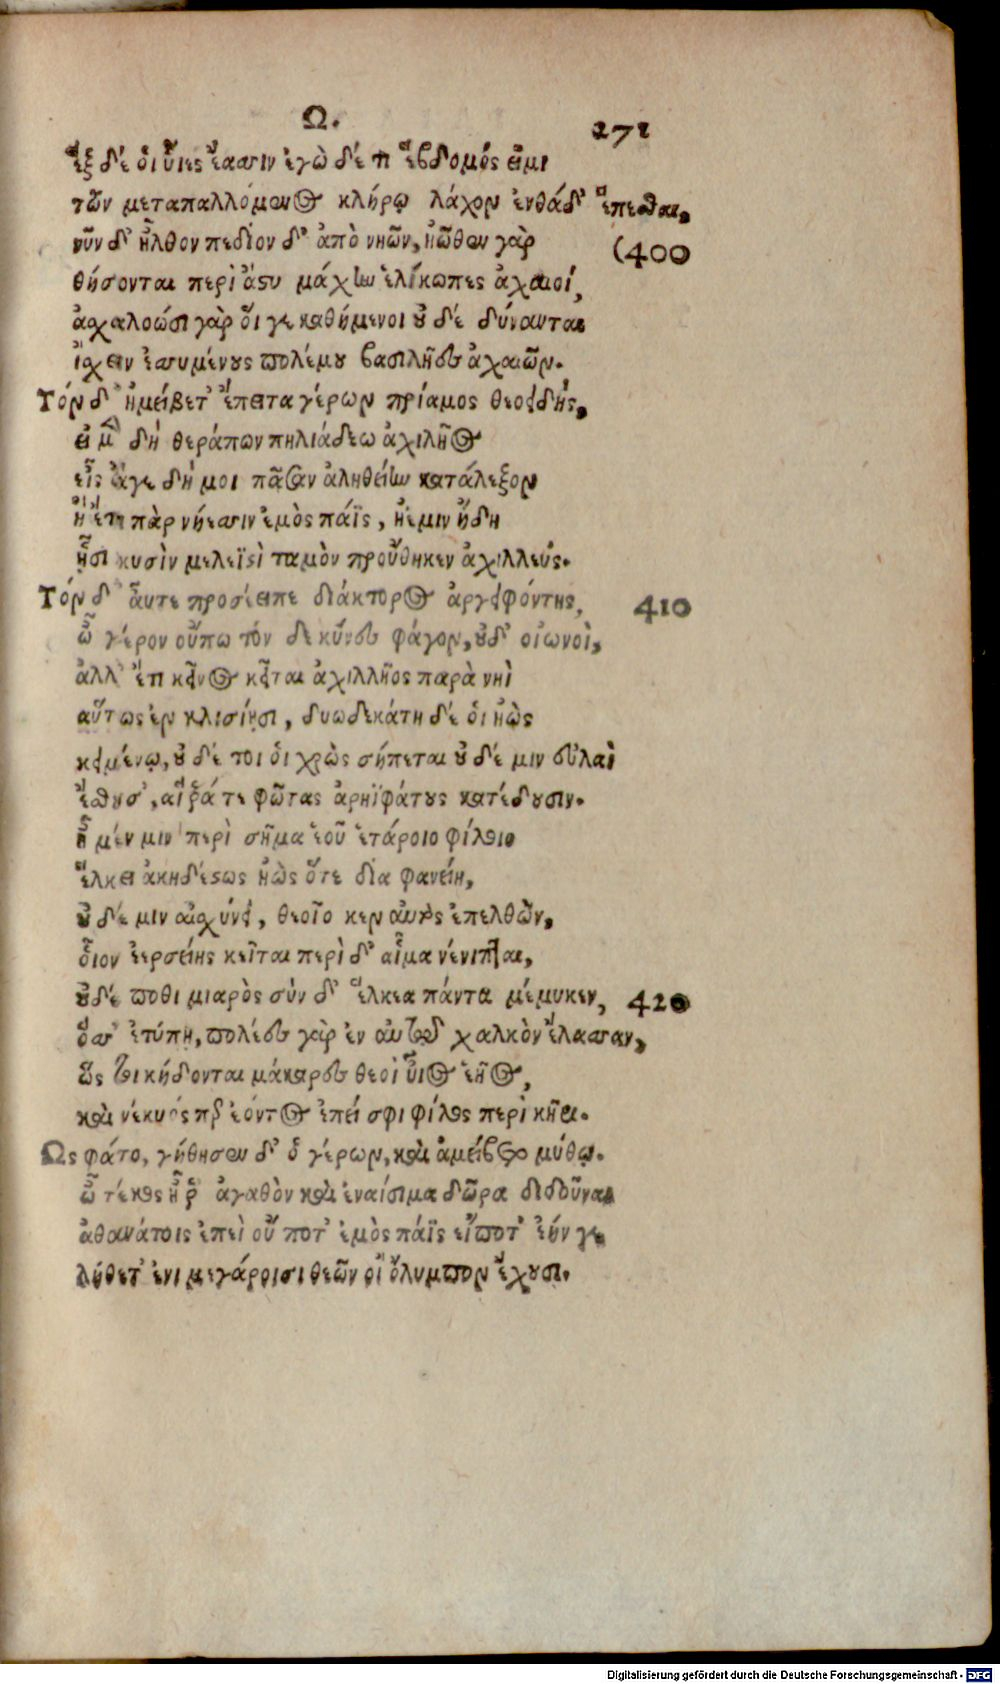 Ω. 271
ἓξ δέ οἱ υἷες ἔασσιν ἐγὼ δέ τι ἕβδομός εἰμι
τῶν μεταπαλλόμενος κλήρῳ λάχον ἐνθάδ' ἕπεσθαι,
νῦν δ' ἦλθον πεδίον δ' ἀπὸ νηῶν, ἠῶθεν γὰρ (400
θήσονται περὶ ἄστυ μάχην ἑλίκωπες ἀχαιοί,
ἀσχαλοώσι γὰρ οἵ γε καθήμενοι οὐδέ δύνανται
ἴσχειν ἐσσυμένους πολέμου βασιλῆες ἀχαιῶν.
Τόν δ' ἠμείβετ' ἔπειτα γέρων πρίαμος θεοειδής,
εἰ μὲν δή θεράπων πηλιάδεω ἀχιλῆος
εἶς ἄγε δή μοι πᾶσαν ἀληθείην κατάλεξον
ἢ ἔτι πὰρ νήεσσιν ἐμὸς πάϊς, ἠέ μιν ἤδη
ᾗσι κυσὶν μελεϊστὶ ταμὸν προὔθηκεν ἀχιλλεύς.
Τόν δ' αὖτε προσέειπε διάκτορος ἀργειφόντης, 410
ὦ γέρον οὔπω τόν δε κύνες φάγον, οὐδ' οἰωνοὶ,
ἀλλ' ἔτι κεῖνος κεῖται ἀχιλλῆος παρὰ νηὶ
αὔτως ἐν κλισίῃσι, δυωδεκάτη δέ οἱ ἠὼς
κειμένῳ, οὐδέ τοι οἱ χρὼς σήπεται οὐδέ μιν εὐλαὶ
ἔσθουσ', αἵ ῥά τε φῶτας ἀρηϊφάτους κατέδουσιν.
ἦ μέν μιν περὶ σῆμα ἑοῦ ἑτάροιο φίλοιο
ἕλκει ἀκηδέστως ἠὼς ὅτε δῖα φανείη,
οὐδέ μιν αἰσχύνει, θεοῖο κεν αὐτὸς ἐπελθὼν,
οἷον ἐερσήεις κεῖται περὶ δ' αἷμα νένιπται,
οὐδέ ποθι μιαρὸς σύν δ' ἕλκεα πάντα μέμυκεν, 420
ὅσσ' ἐτύπη, πολέες γὰρ ἐν αὐτῷ χαλκὸν ἔλασσαν,
ὥς τοι κήδονται μάκαρες θεοὶ υἷος ἑῆος,
καὶ νέκυός περ ἐόντος ἐπεί σφι φίλος περὶ κῆρι.
Ως φάτο, γήθησεν δ' ὁ γέρων, καὶ ἀμείβετο μύθῳ.
ὦ τέκος ἦ ῥ' ἀγαθὸν καὶ ἐναίσιμα δῶρα διδοῦναι
ἀθανάτοις ἐπεὶ οὔ ποτ' ἐμὸς πάϊς εἴποτ' ἔην γε
λήθετ' ἐνι μεγάροισι θεῶν οἳ ὄλυμπον ἔχουσι.
Digitalisierung gefördert durch die Deutsche Forschungsgemeinschaft - DFG